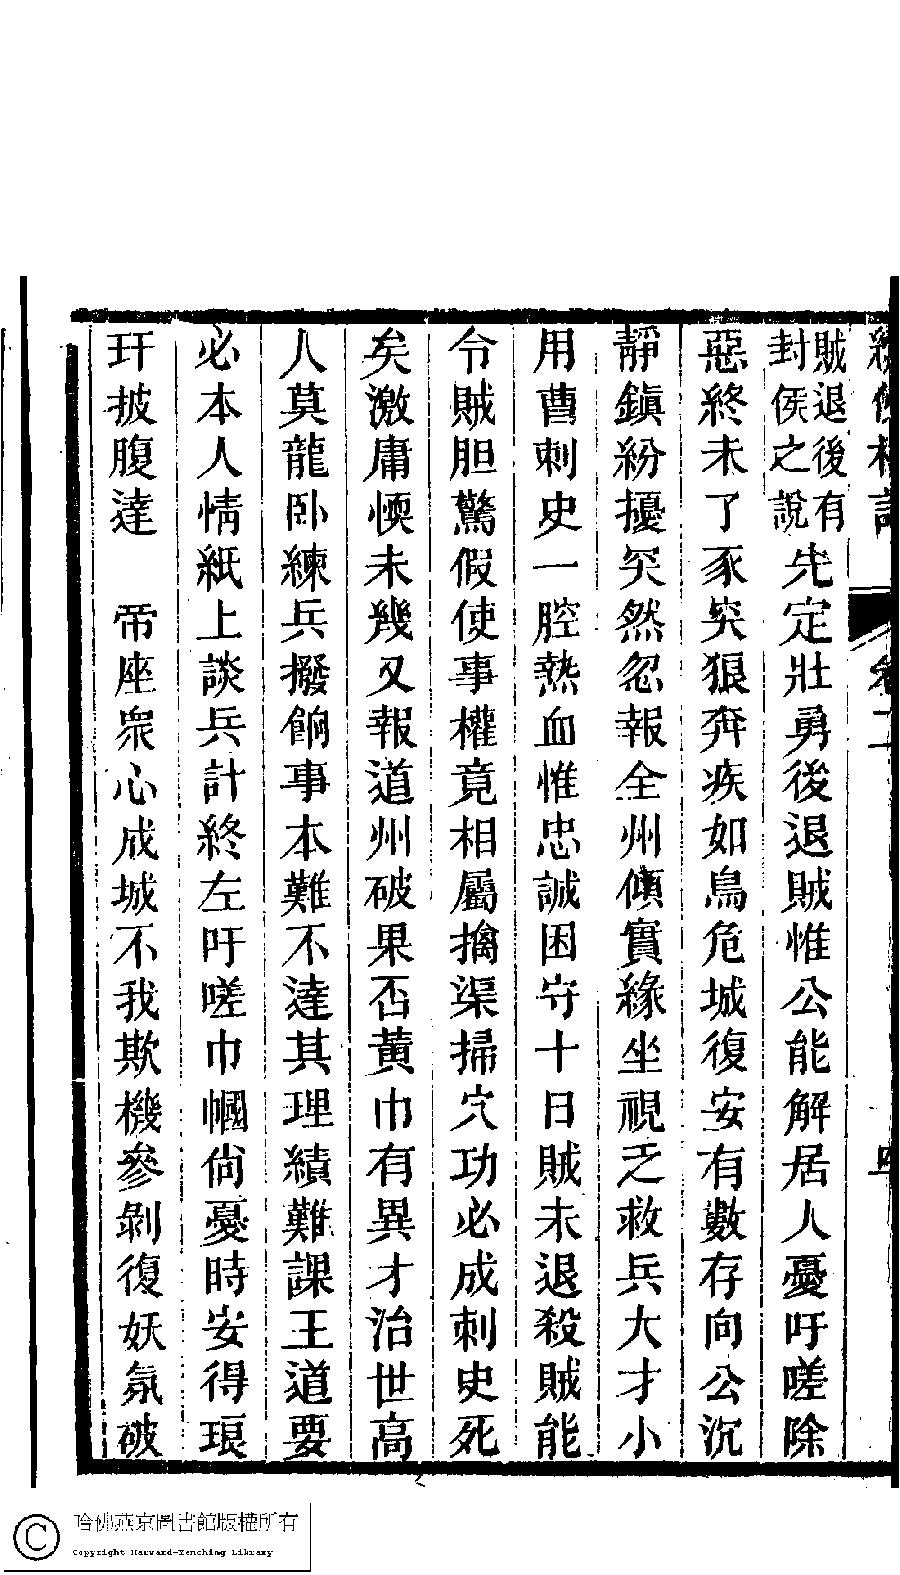 賊退後有
封侯之說
先定壯勇後退賊惟公能解居人憂吁嗟除
惡終未了豕突狼奔疾如鳥危城復安有數存向公沉
靜鎮紛擾突然忽報全州傾實緣坐視乏救兵大才小
用曹刺史一腔熱血惟忠誠困守十日賊未退殺賊能
令賊胆驚假使事權竟相屬擒渠掃穴功必成刺史死
矣激庸愞未幾又報道州破果否黃巾有異才治世高
人莫龍卧練兵撥餉事本難不達其理績難課王道要
必本人情紙上談兵計終左吁嗟巾幗尙憂時安得琅
玕披腹達 帝座衆心成城不我欺機參剝復妖氛破
卷二
哈佛燕京圖書館版權所有
Copyright Harvard-Yenching Library